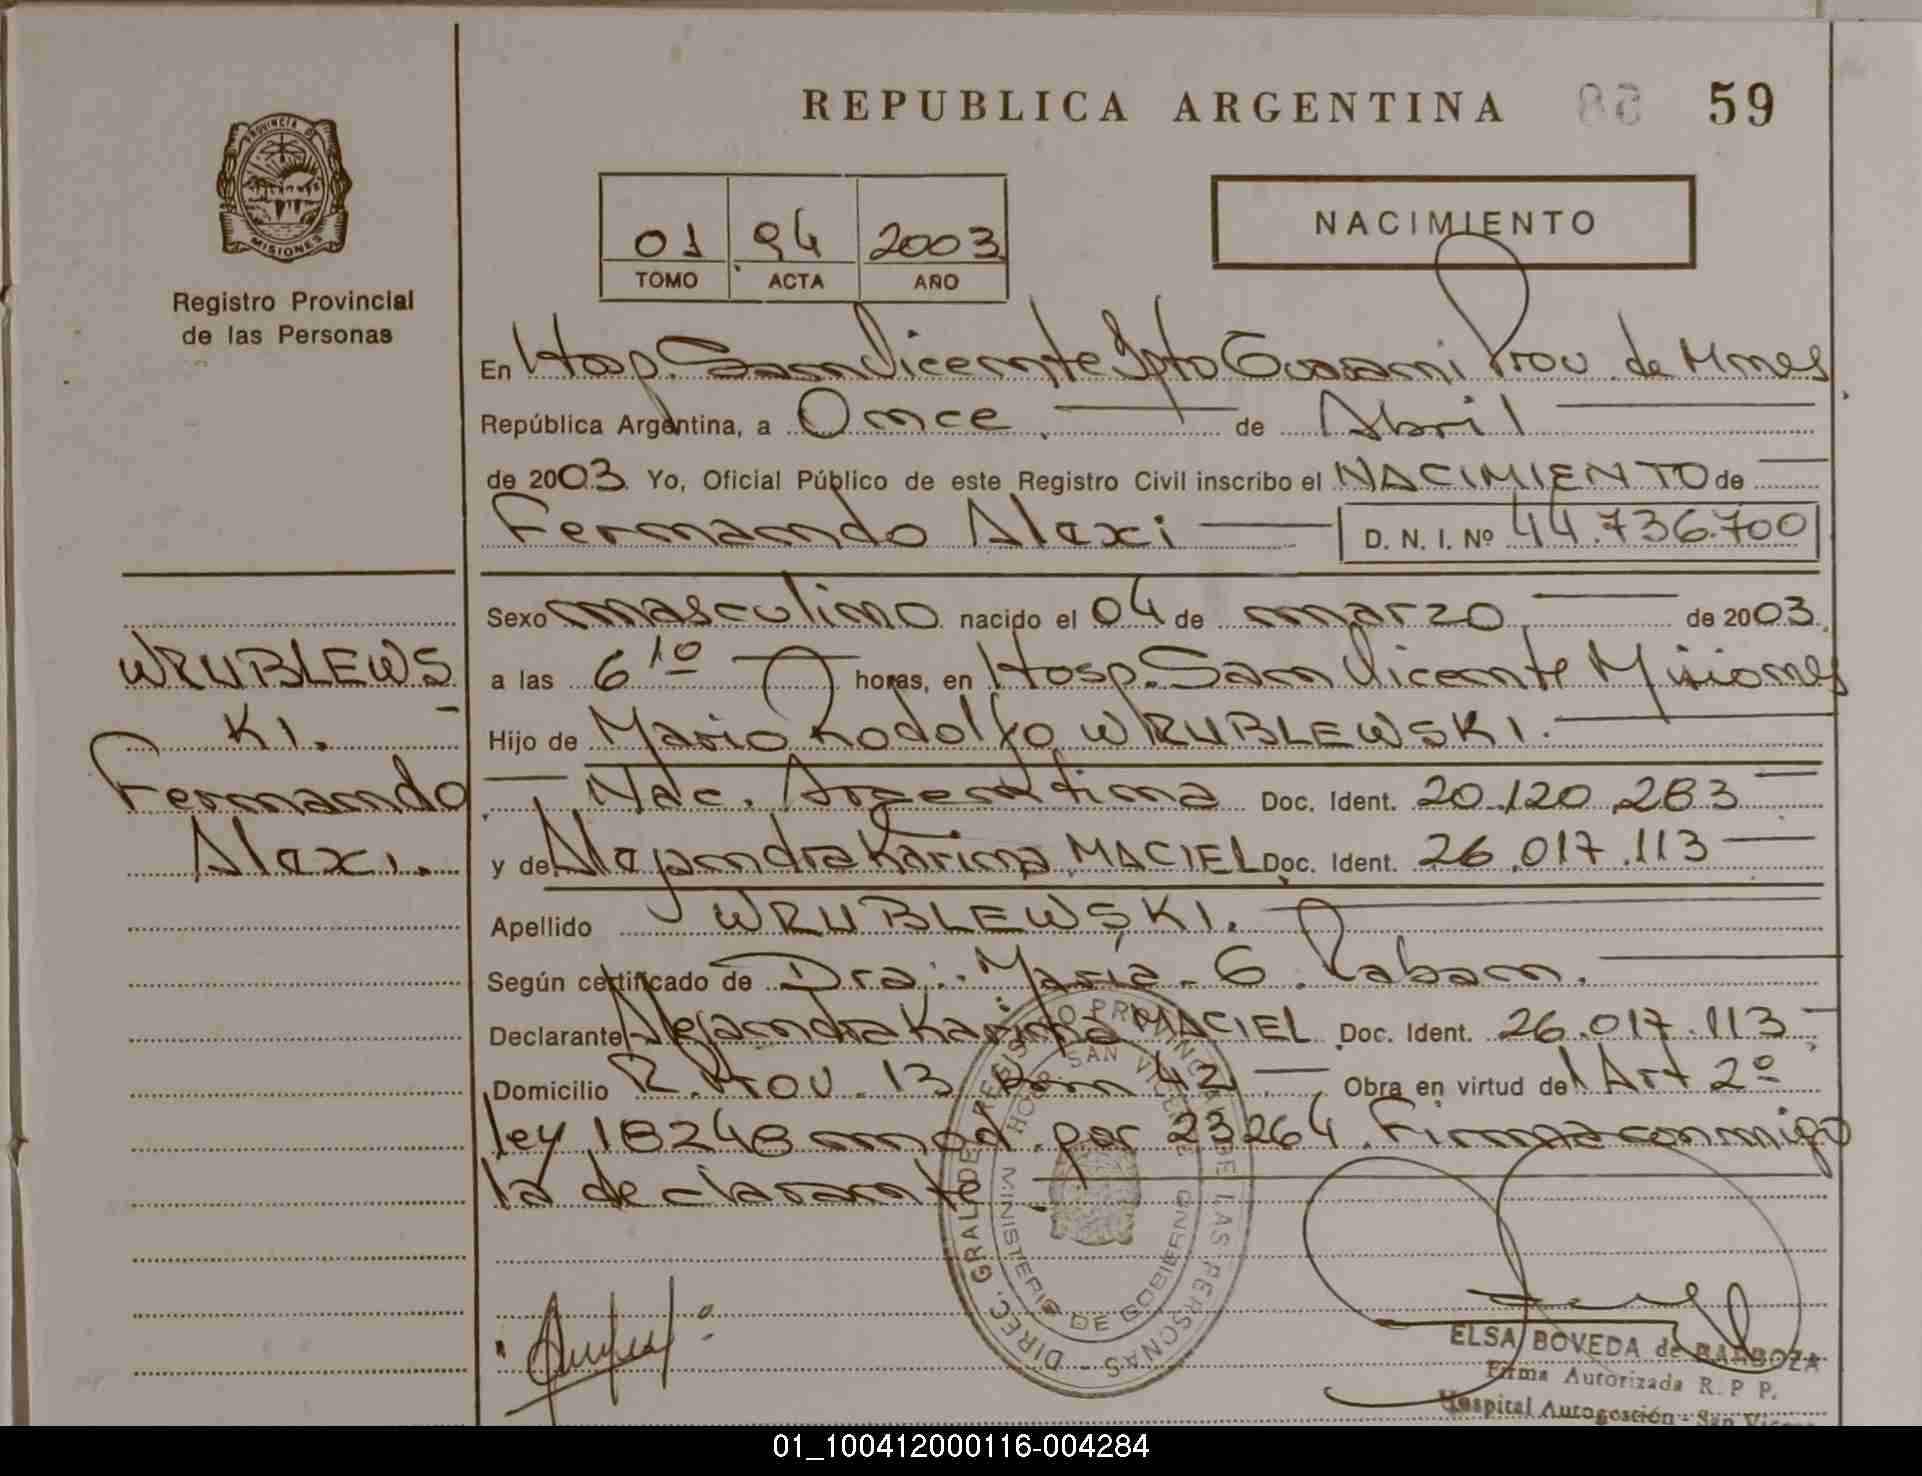 REPUBLICA ARGENTINA 58 59
PROVINCIA DE
MISIONES
Registro Provincial
de las Personas
01 94 2003
TOMO ACTA AÑO
NACIMIENTO
En Hosp. San Vicente Dpto Guarani Prov. de Mnes
República Argentina, a Once de Abril
de 2003. Yo, Oficial Público de este Registro Civil inscribo el NACIMIENTO de
Fernando Alexi D. N. I. Nº 44.736.700
Sexo masculino nacido el 04 de marzo de 2003.
a las 6 10 horas, en Hosp. San Vicente Misiones
Hijo de Mario Rodolfo WRUBLEWSKI.
Nac. Argentina Doc. Ident. 20.120.283
y de Alejandra Karina MACIEL Doc. Ident. 26.017.113
Apellido WRUBLEWSKI.
Según certificado de Dra: María G. Raban.
Declarante Alejandra Karina MACIEL Doc. Ident. 26.017.113
Domicilio R. Prov. 13 km 42 Obra en virtud del Art 2º
ley 18248 mod. por 23264. Firma conmigo
la declarante.
WRUBLEWS
KI.
Fernando
Alexi.
DIREC. GRAL DEL REGISTRO PROVINCIAL DE LAS PERSONAS
HOSP. SAN VICENTE
MINISTERIO DE GOBIERNO
ELSA BOVEDA de BARBOZA
Firma Autorizada R. P P.
Hospital Autogestión - San Vicente
01_100412000116-004284